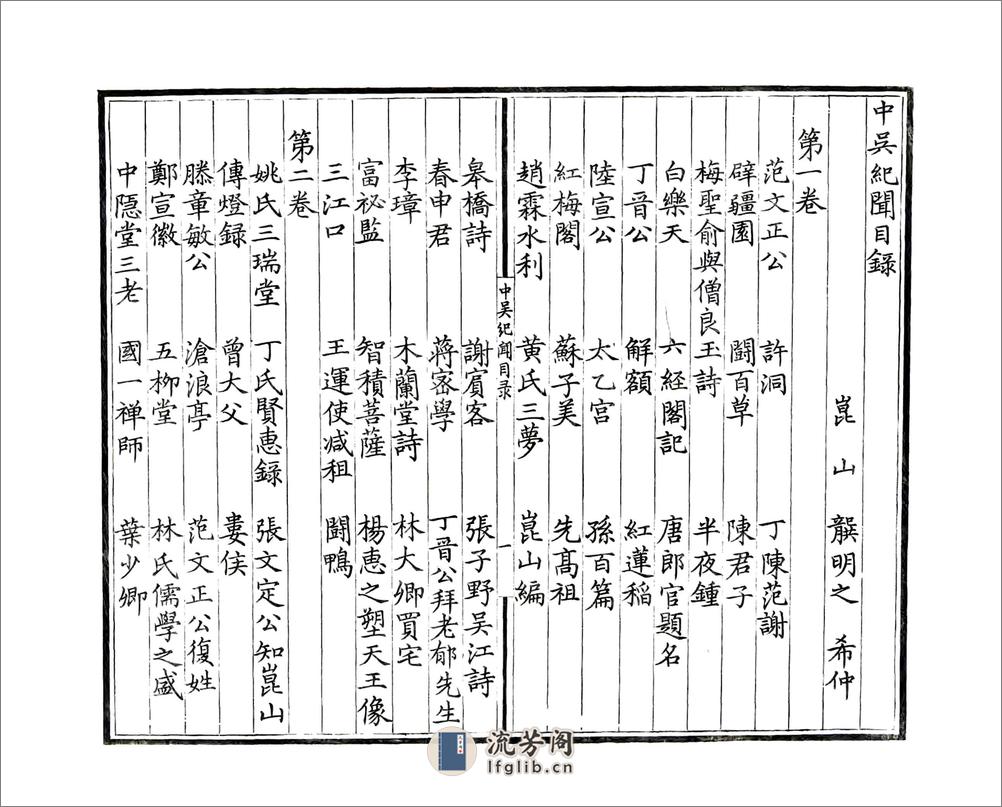 中吳紀聞目錄
崑山 龔明之 希仲
第一卷
范文正公 許洞 丁陳范謝
辟疆園 鬭百草 陳君子
梅聖俞與僧良玉詩 半夜鍾
白樂天 六經閣記 唐郎官題名
丁晉公 解額 紅蓮稻
陸宣公 太乙宮 孫百篇
紅梅閣 蘇子美 先高祖
趙霖水利 黃氏三夢 崑山編
中吴紀闻目录 一
皋橋詩 謝賓客 張子野吳江詩
春申君 蔣密學 丁晉公拜老郁先生
李璋 木蘭堂詩 林大卿買宅
富祕監 智積菩薩 楊惠之塑天王像
三江口 王運使減租 鬭鴨
第二卷
姚氏三瑞堂 丁氏賢惠錄 張文定公知崑山
傳燈録 曾大父 婁侯
滕章敏公 滄浪亭 范文正公復姓
鄭宣徽 五柳堂 林氏儒學之盛
中隱堂三老 國一禅師 葉少卿
流芳阁
lfglib.cn